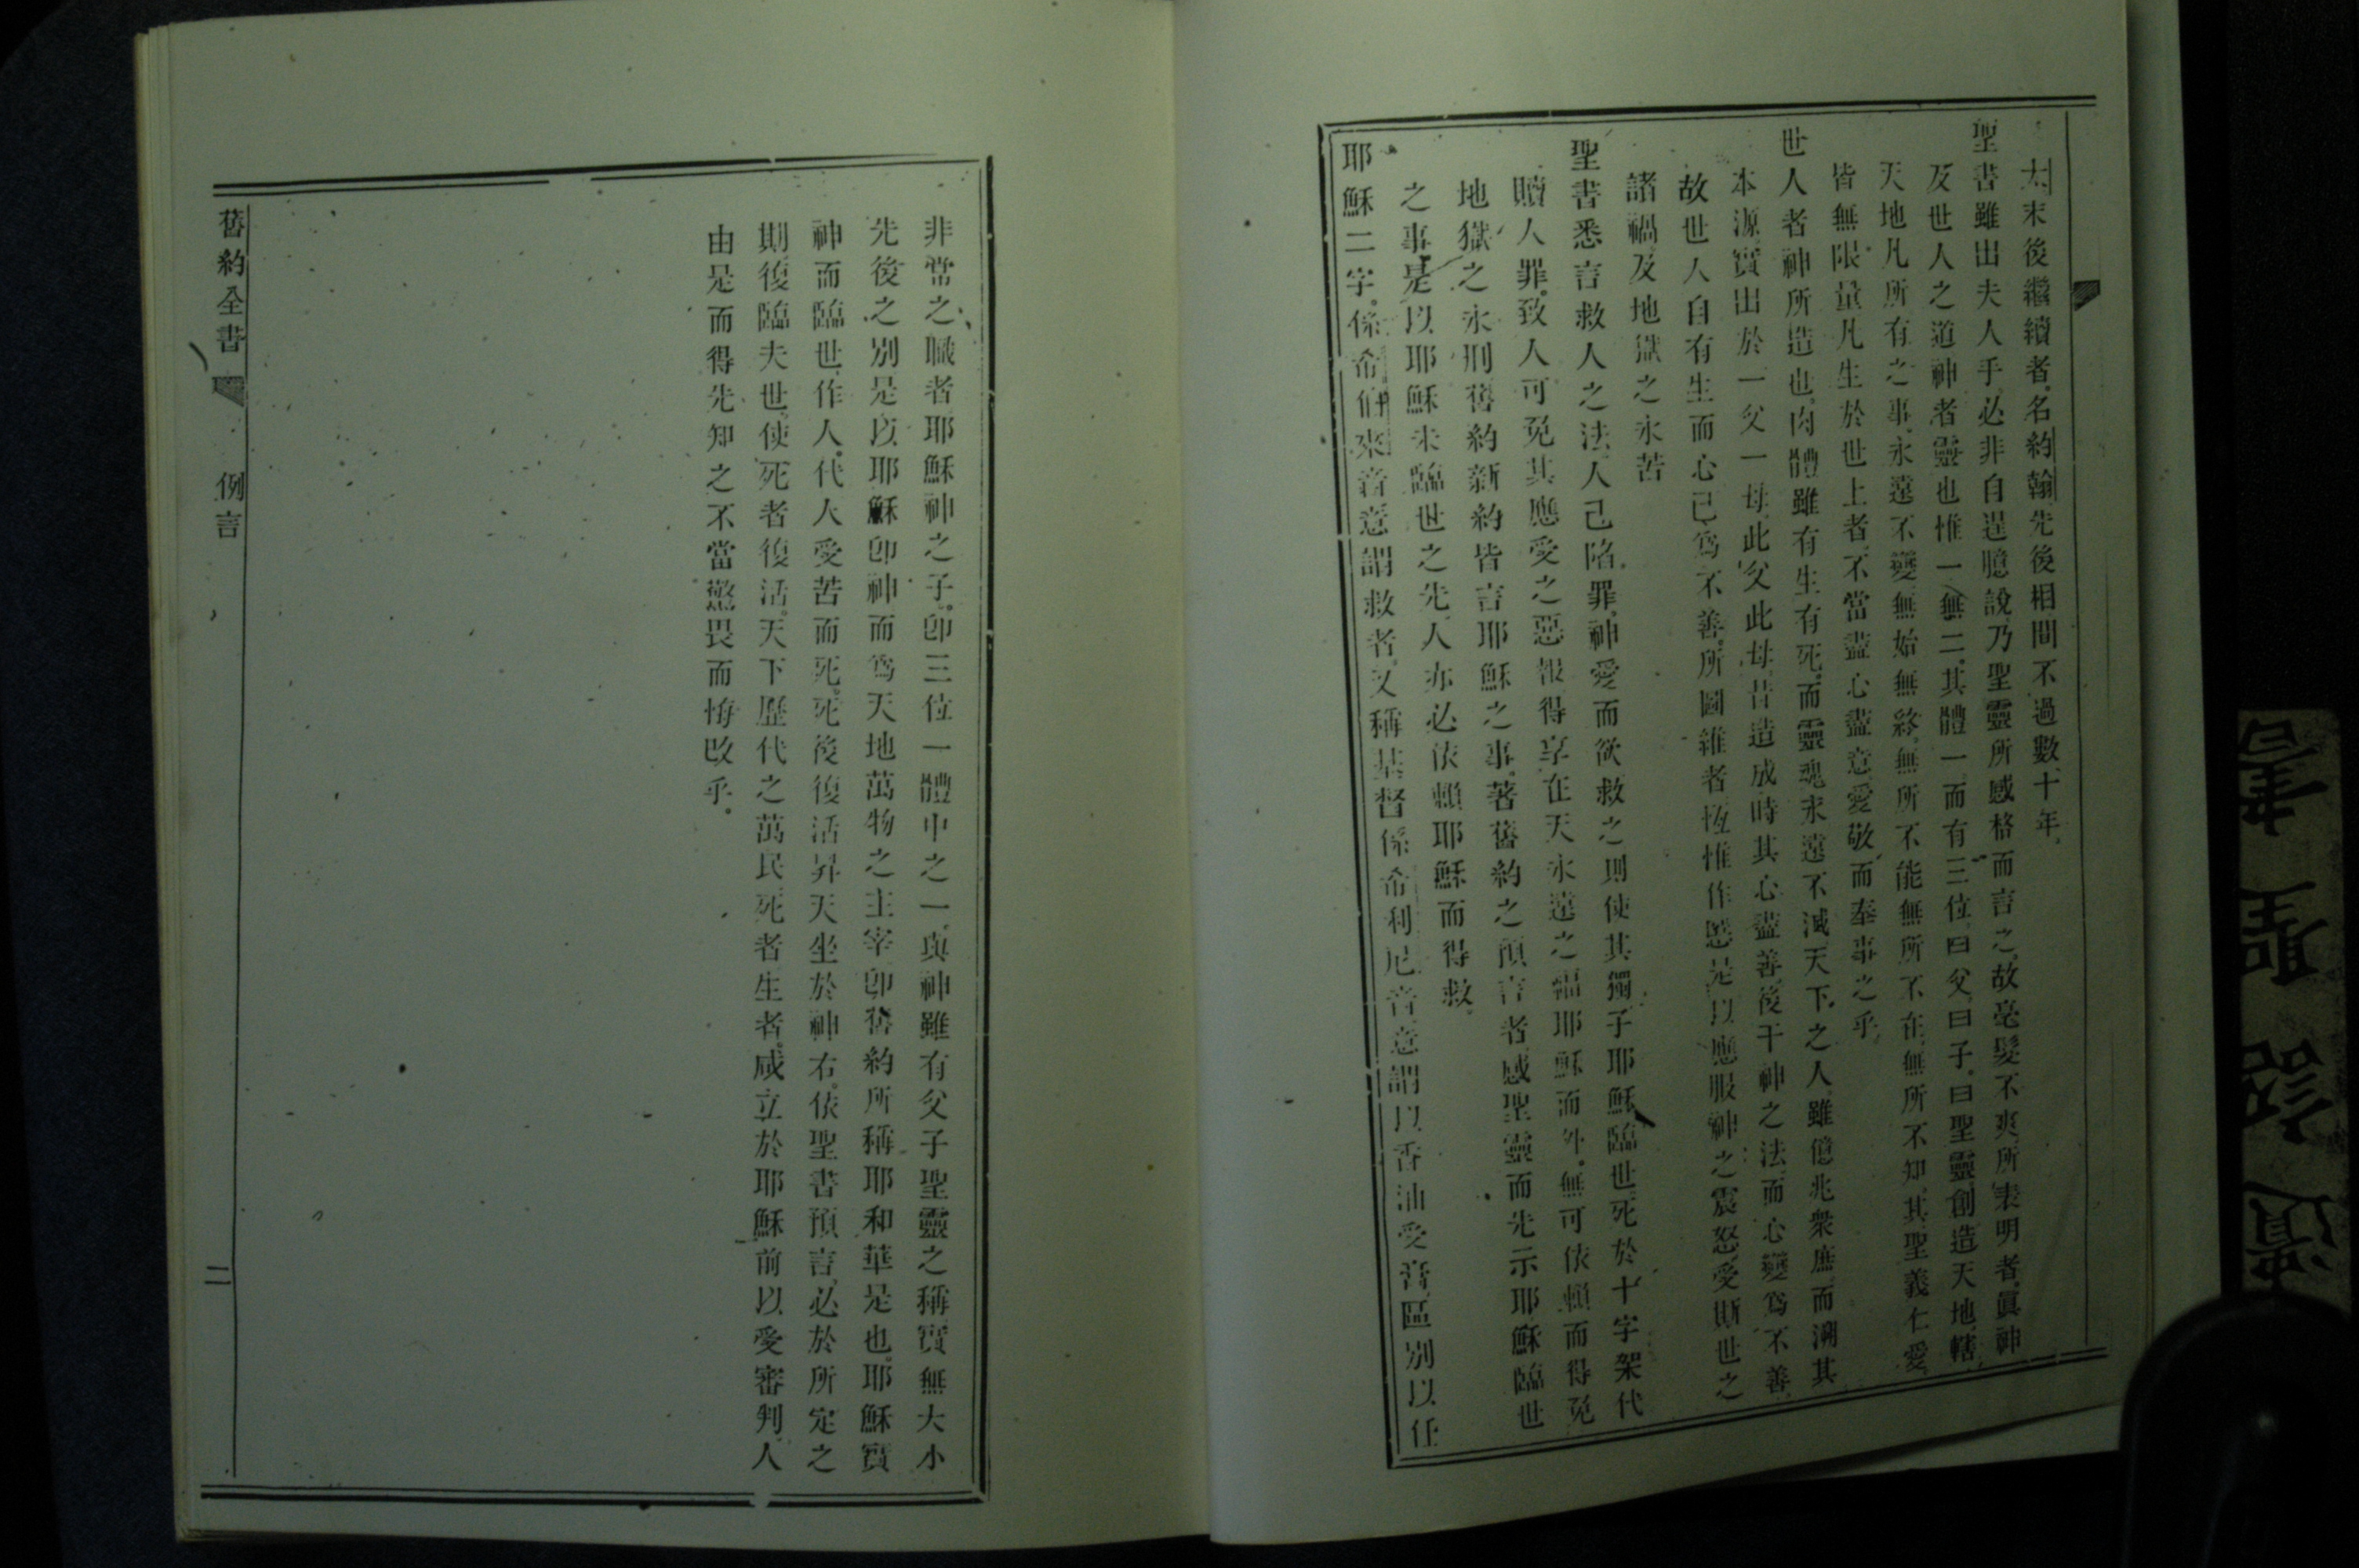 太末後繼續者名約翰先後相間不過數十年
聖書雖出夫人手必非自逞臆說乃聖靈所感格而言之故毫髮不爽所表明者眞神
及世人之道神者靈也惟一無二其體一而有三位曰父曰子曰聖靈創造天地轄
天地凡所有之事永遠不變無始無終無所不能無所不在無所不知其聖義仁愛
皆無限量凡生於世上者不當盡心盡意愛敬而奉事之乎
世人者神所造也肉體雖有生有死而靈魂永遠不滅天下之人雖億兆衆庶而溯其
本源實出於一父一母此父此母昔造成時其心盡善後干神之法而心變爲不善
故世人自有生而心已爲不善所圖維者恆惟作惡是以應服神之震怒受斯世之
諸禍及地獄之永苦
聖書悉言救人之法人已陷罪神愛而欲救之則使其獨子耶穌臨世死於十字架代
贖人罪致人可免其應受之惡報得享在天永遠之福耶穌而外無可依賴而得免
地獄之永刑舊約新約皆言耶穌之事著舊約之預言者感聖靈而先示耶穌臨世
之事是以耶穌未臨世之先人亦必依賴耶穌而得救
耶穌二字係希伯來音意謂救者又稱基督係希利尼音意謂以香油受膏區別以任
非常之職者耶穌神之子卽三位一體中之一眞神雖有父子聖靈之稱實無大小
先後之別是以耶穌卽神而爲天地萬物之主宰卽舊約所稱耶和華是也耶穌實
神而臨世作人代人受苦而死死後復活昇天坐於神右依聖書預言必於所定之
期復臨夫世使死者復活天下歷代之萬民死者生者咸立於耶穌前以受審判人
由是而得先知之不當驚畏而悔改乎
舊約全書 例言 二